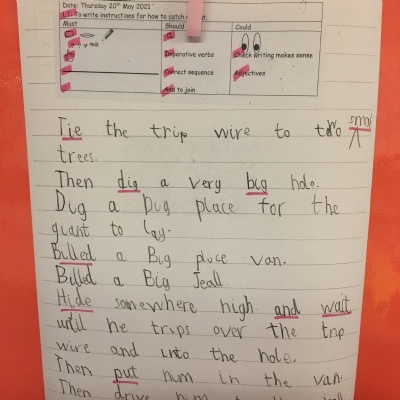 Date: Thursday 20th May 2021
L.I. To write instructions for how to catch a giant.
Must Should Could
Imperative verbs Check writing makes sense
Correct sequence Adjectives
And to join
Tie the trip wire to two smal
trees.
Then dig a very big hole.
Dig a Dug place for the
giant to lay.
Billed a Big pluce van.
Billed a Big Jeall.
Hide somewhere high and wait
until he trips over the trip
wire and into the hole.
Then put hum in the van.
Then drive him to the jeall